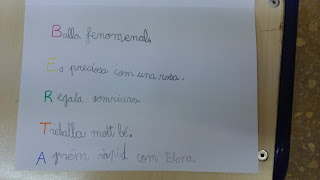 Balla fenomenal.
Es preciosa com una rosa.
Regala somriures
Treballa molt bé.
Aprem ràpid com Elena.